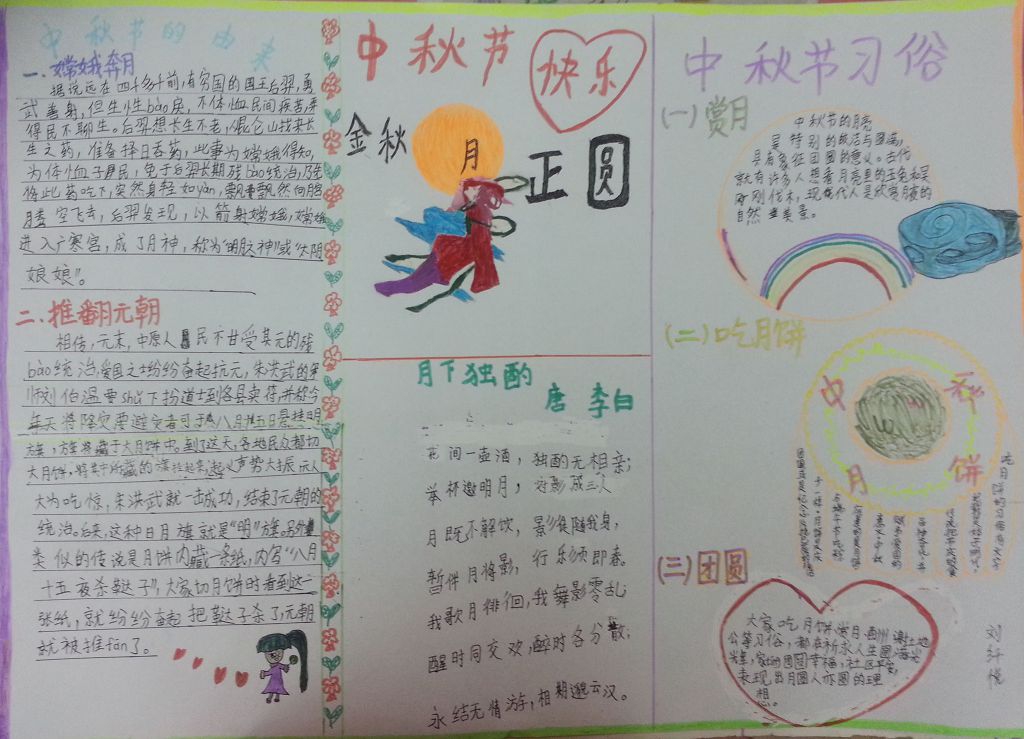 中秋节的由来
一、嫦娥奔月
据说远在四千多千前,有穷国的国王后羿,勇
武善射,但生性bào戾,不体恤民间疾苦,弄
得民不聊生。后羿想长生不老,从昆仑山找来长
生之药,准备择日吞药,此事为嫦娥得知,
为体恤子民,免于后羿长期残bào统治,乃
将此药吃下,突然身轻如yàn,飘飘然向
空飞去,后羿发现,以箭射嫦娥,嫦娥
进入广寒宫,成了月神,称为"明月之神"或"太阴
娘娘"。
二、推翻元朝
相传,元末,中原人民不甘受其元的残
bào统治,爱国之士纷纷奋起抗元,朱洪武的军
师刘伯温shú下扮道士到各县卖符,并称今
年天将降灾要避灾者可于八月十五日悬挂明
旗,方旗将藏于大月饼中。到了这天,各地民众都切
大月饼,将其中所藏的旗挂起来,起义声势大振,元人
大为吃惊,朱洪武就一击成功,结束了元朝的
统治。后来,这种日月旗就是"明"旗。另外
类似的传说是月饼内藏一条纸,内写"八月
十五夜杀鞑子",大家切月饼时看到这一
张纸,就纷纷奋起把鞑子杀了,元朝
就被推fān了。
中秋节快乐
金秋月正圆
月下独酌
唐 李白
花间一壶酒,独酌无相亲;
举杯邀明月,对影成三人
月既不解饮,影徒随我身,
暂伴月将影,行乐须即春。
我歌月徘徊,我舞影零乱;
醒时同交欢,醉时各分散,
永结无情游,相期邈云汉。
中秋节习俗
(一)赏月
中秋节的月亮
是特别的皎洁与圆满,
具有象征团圆的意义。古代
就有许多人想看月亮里的玉兔和吴
刚伐木,现代人是欣赏月夜的
自然美景。
(二)吃月饼
中秋月饼
(三)团圆
大家吃月饼、赏月、
公等习俗,都在祈求人生圆满
家的团圆幸福,社区平安,
表现出月圆人亦圆的理
想。